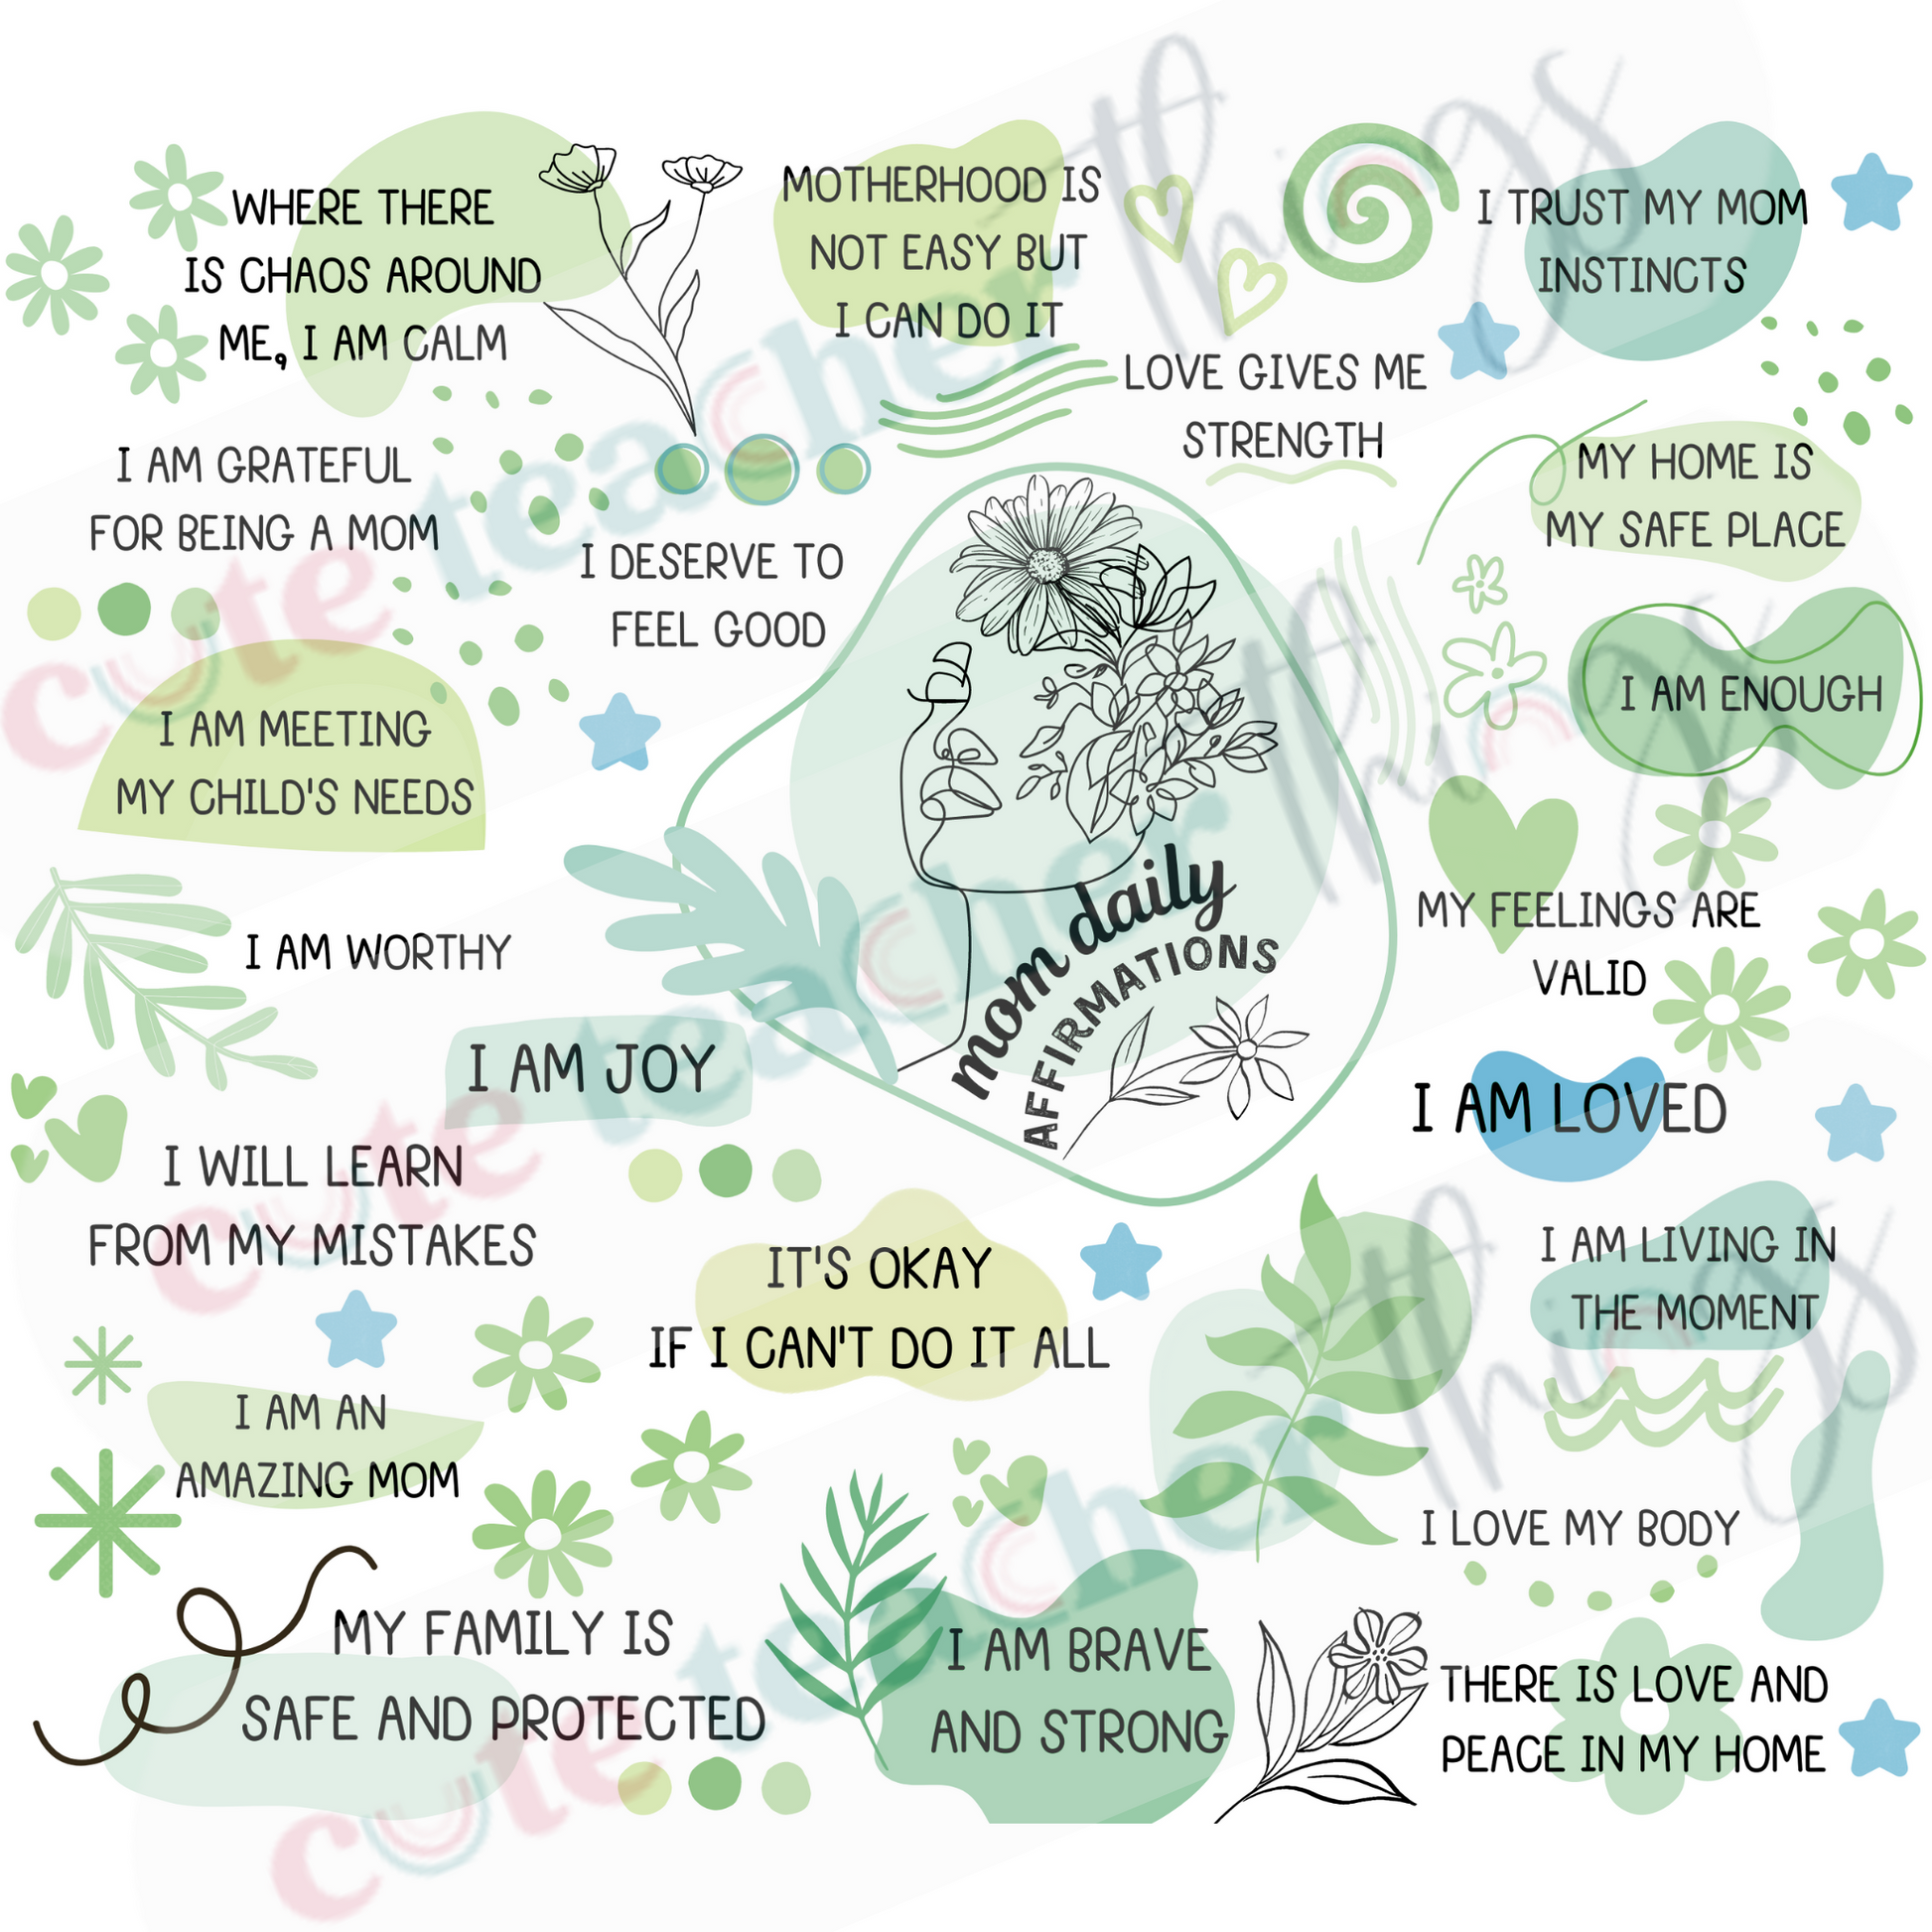 WHERE THERE
IS CHAOS AROUND
ME, I AM CALM
MOTHERHOOD IS
NOT EASY BUT
I CAN DO IT
I TRUST MY MOM
INSTINCTS
LOVE GIVES ME
STRENGTH
I AM GRATEFUL
FOR BEING A MOM
MY HOME IS
MY SAFE PLACE
I DESERVE TO
FEEL GOOD
I AM ENOUGH
I AM MEETING
MY CHILD'S NEEDS
MY FEELINGS ARE
VALID
I AM WORTHY
mom daily
AFFIRMATIONS
I AM JOY
I AM LOVED
I WILL LEARN
FROM MY MISTAKES
IT'S OKAY
IF I CAN'T DO IT ALL
I AM LIVING IN
THE MOMENT
I AM AN
AMAZING MOM
I LOVE MY BODY
MY FAMILY IS
SAFE AND PROTECTED
I AM BRAVE
AND STRONG
THERE IS LOVE AND
PEACE IN MY HOME
cute teacher things
cute teacher things
cute teacher things